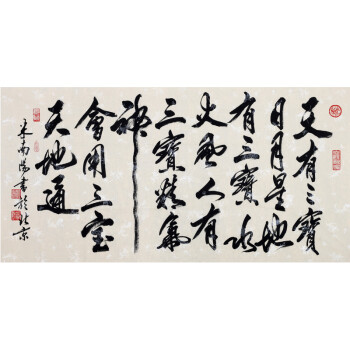 天有三寳
日月星地
有三寳水
火風人有
三寳精氣
神
會用三宝
天地通
米南陽書於北京